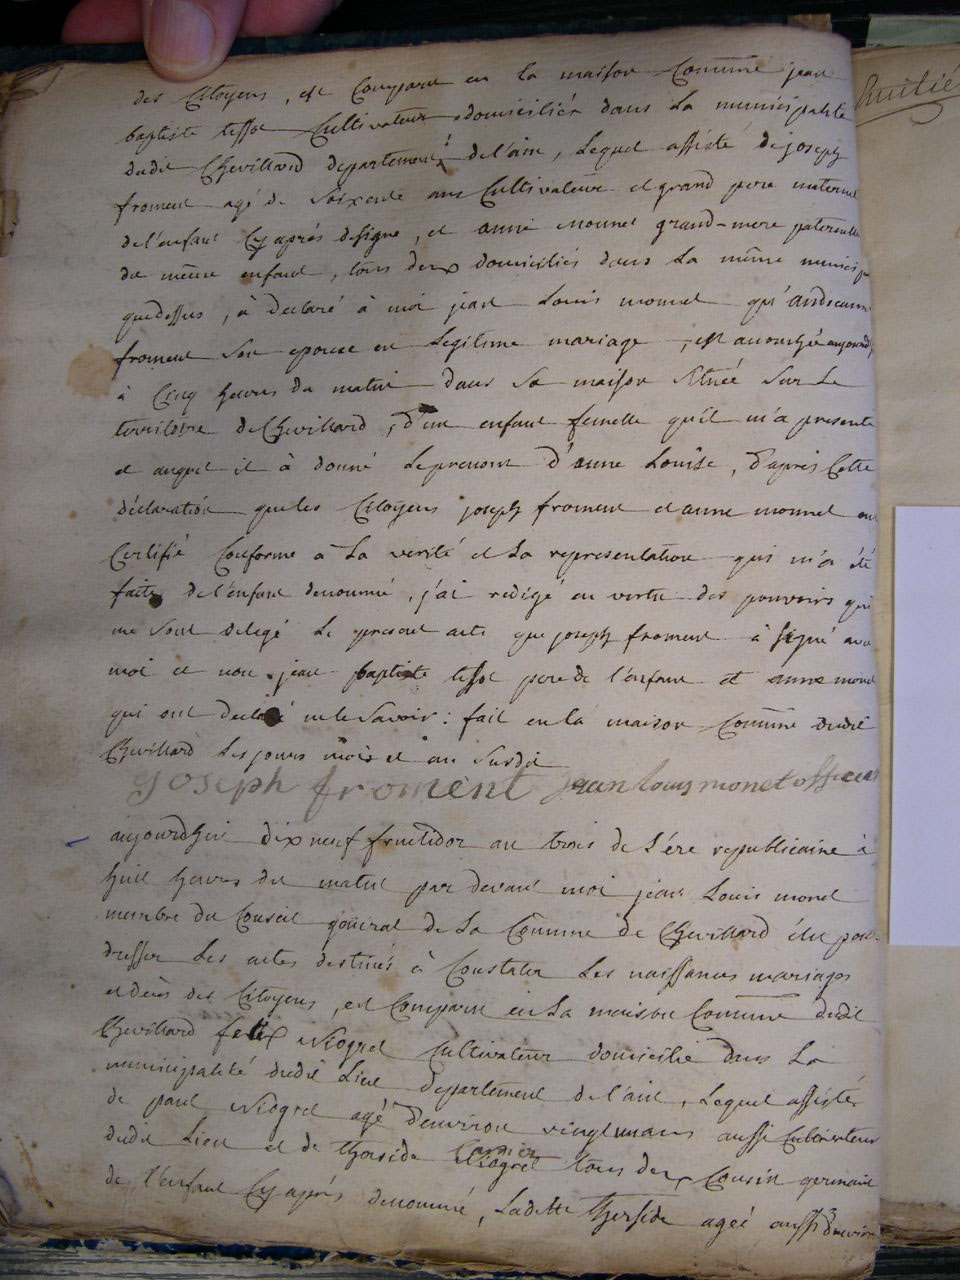 des Citoyens, est Comparu en la maison Commune jean
baptiste tissot Cultivateur domiciliés dans La municipalité
dudit Chevillard departement de l'ain, Lequel assisté de joseph
froment agé de Soixente ans Cultivateur et grand pere maternel
de l'enfant Cy aprés designé, et anne monnet grand-mere paternelle
du même enfant, tous deux domiciliés dans La même municip
que dessus, à declaré à moi jean Louis monnet qu'
froment Son epouse en Legitime mariage, est accouchée aujourd
à Cinq heures du matin dans Sa maison Situeé Sur Le
territoire de Chevillard, d'un enfant femelle qu'il m'a presenté
et auquel il à donné Le prenom d'anne Louise, d'aprés Cette
déclaration que les Citoyens joseph froment et anne monnet ont
Certifié Conforme à La verité et La representation qui m'a été
faite de l'enfant denommé, j'ai redigé en vertu des pouvoirs qui
me Sont delegé Le present acte que joseph froment à Signé avec
moi et non jean baptiste tissot pere de l'enfant et anne monet
qui ont declaré ne le Savoir : fait en la maison Commune dudit
Chevillard Les jours mois et an Susdit
joseph froment jean louis monet officier
aujourdhui dix neuf fructidor an trois de L'ére republicaine à
huit heures du matin par devant moi jean Louis monet
membre du Conseil géneral de La Commune de Chevillard élu pour
dresser Les actes destinés à Constater Les naissances mariages
et décès des Citoyens, est Comparu en La maison Commune dudit
Chevillard felix Niogret Cultivateur domicilié dans La
municipalité dudit Lieu departement de l'ain, Lequel assisté
de paul Niogret agé d'environ vingt ans aussi Cultivateur
dudit Lieu et de Niogret tous deux Cousin germain
de l'enfant Cy aprés denommé, Ladite agée aussi d'environ